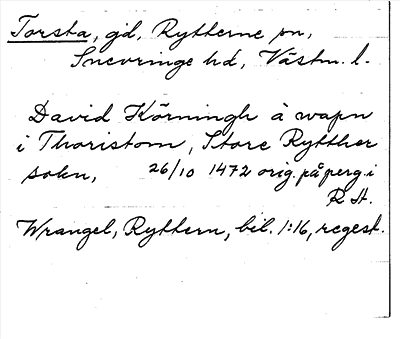 Torsta, gd, Rytterne sn,
Snevringe hd, Västm. l.
David Körningh à wapn
i Thoristom, Store Rytther
sokn, 26/10 1472 orig. på perg. i
R.A.
Wrangel, Ryttern, bil. 1:16, regest.